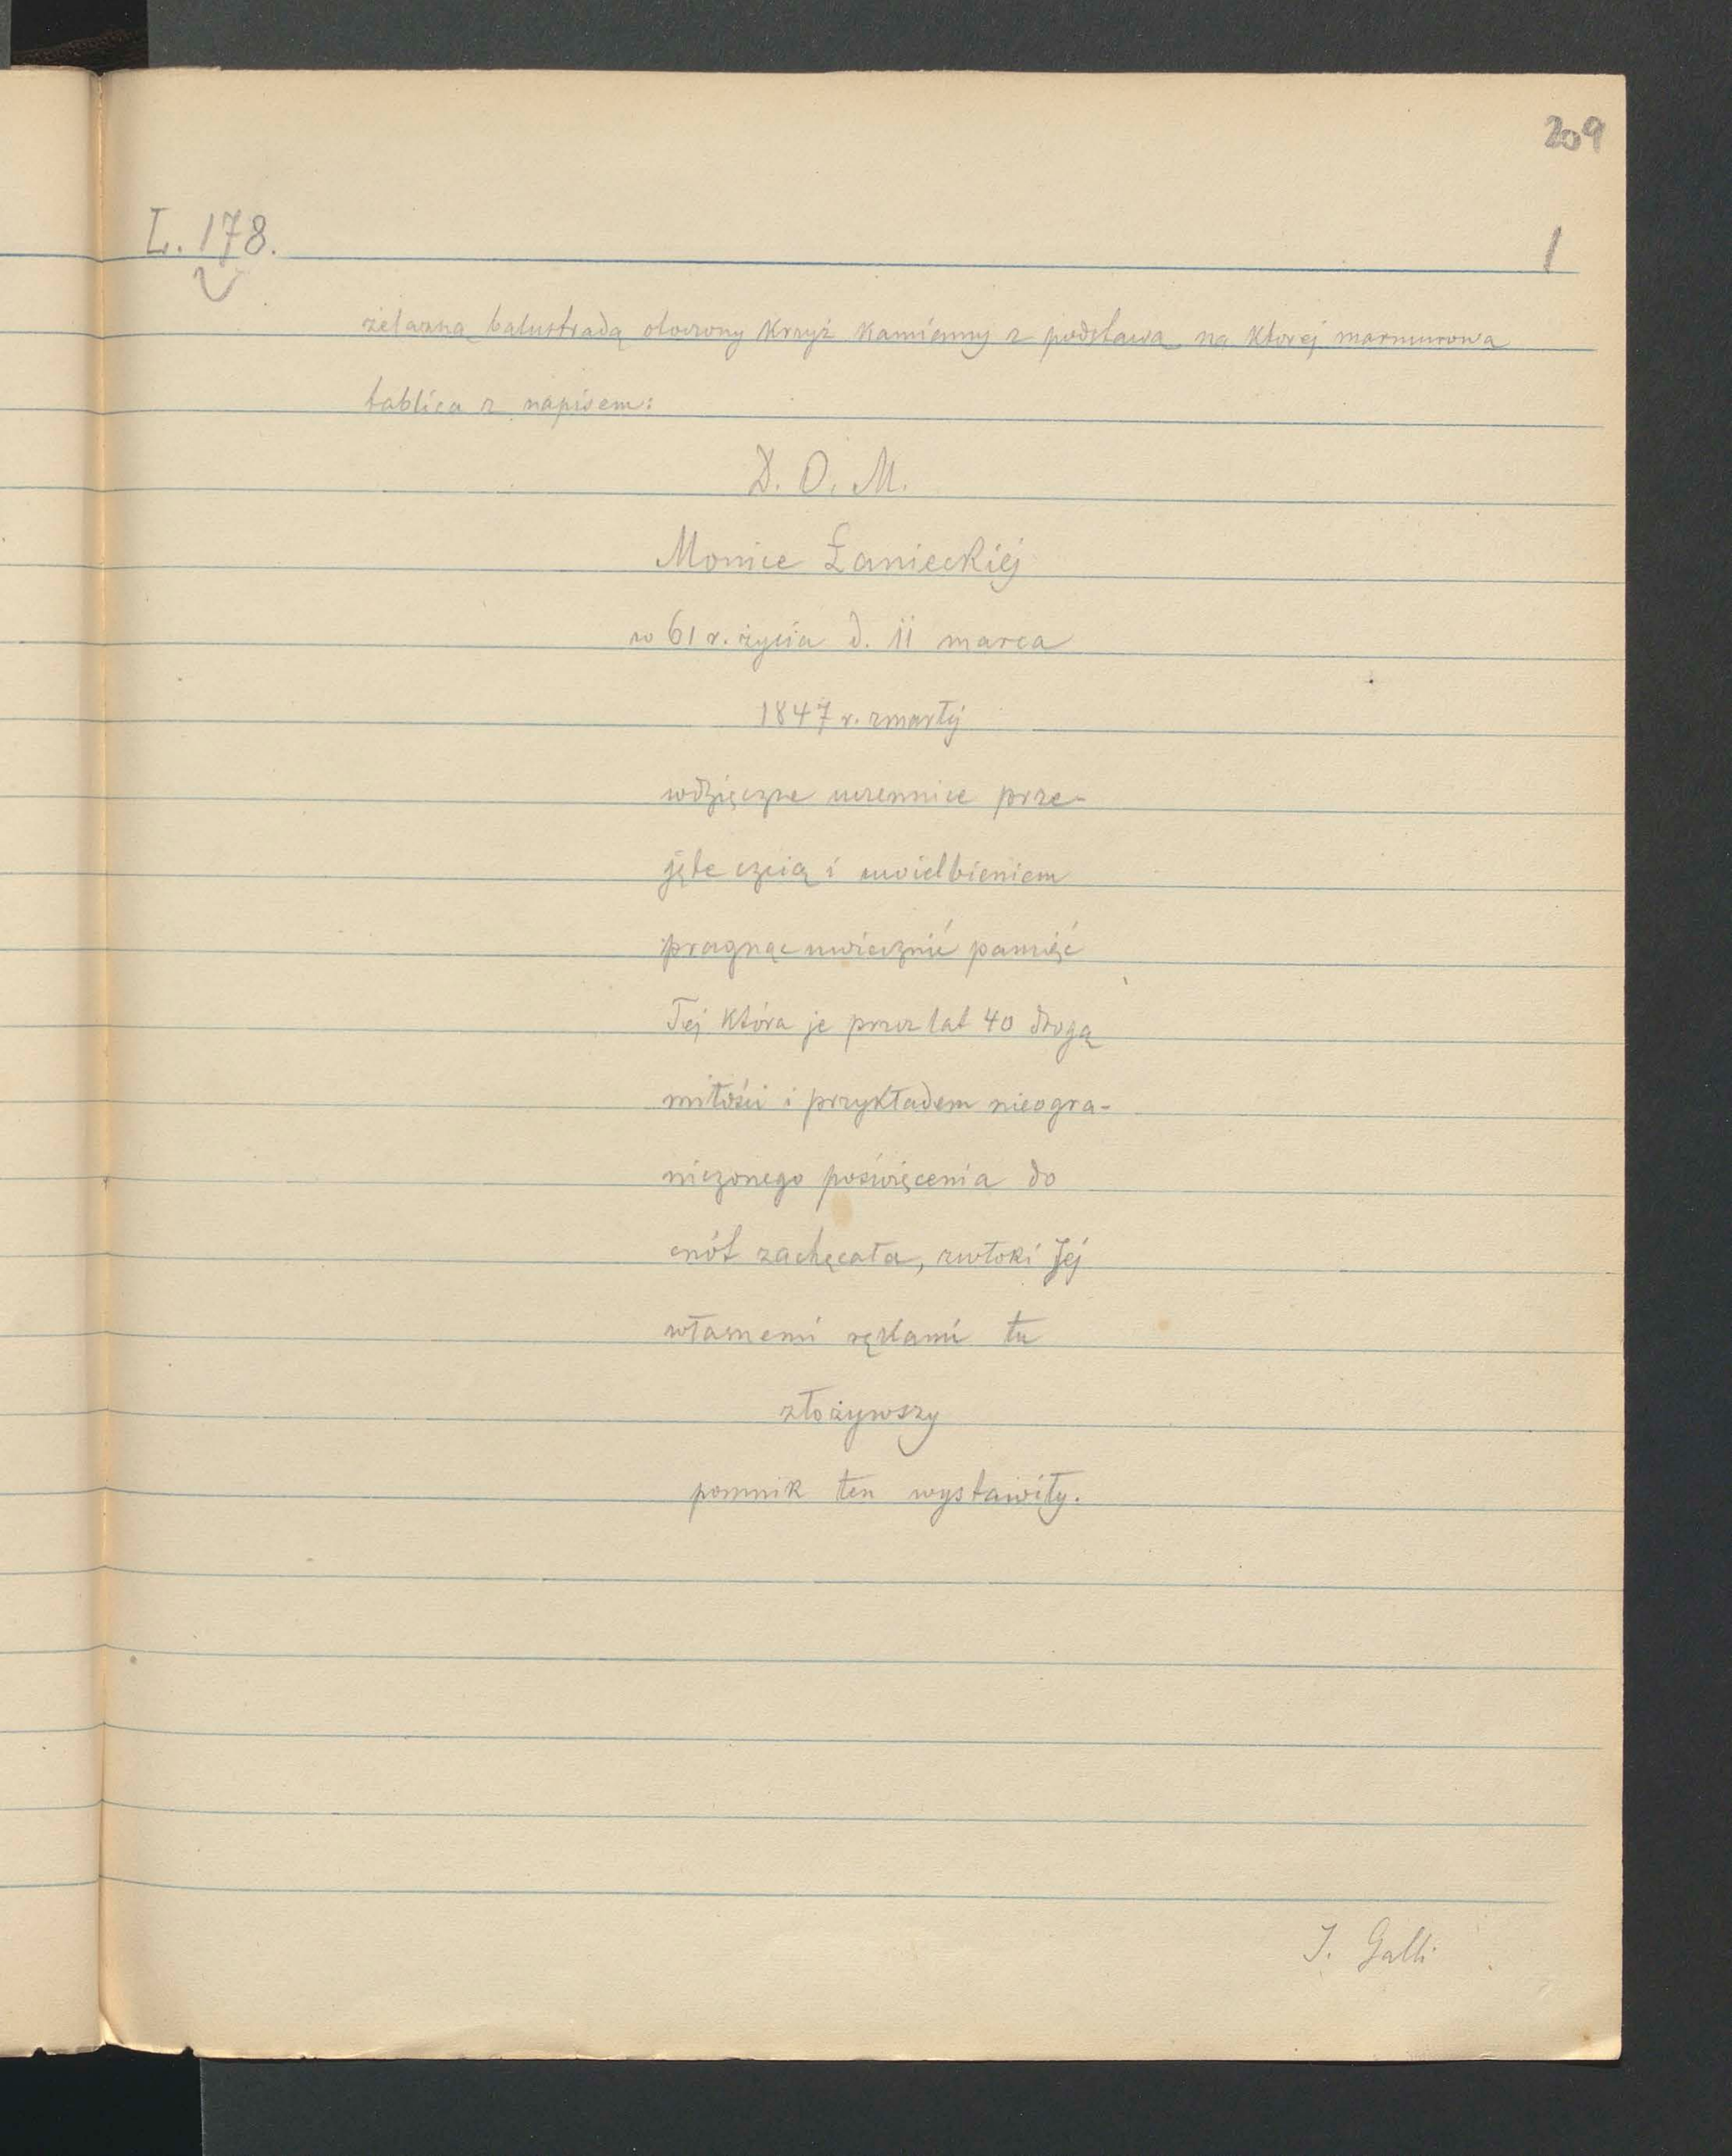 209
L. 178.
1
żelazną balustradą otoczony Krzyż Kamienny z podstawą na której marmurowa
tablica z napisem:
D. O. M.
Monice Łanieckiej
w 61 r. życia d. 11 marca
1847 r. zmarłej
wdzięczne uczennice prze-
jęte czcią i uwielbieniem
pragnąc uwiecznić pamięć
Tej Która je przez lat 40 drogą
miłości i przykładem nieogra-
niczonego poświęcenia do
cnót zachęcała, zwłoki Jej
własnemi rękami tu
złożywszy
pomnik ten wystawiły.
J. Galli